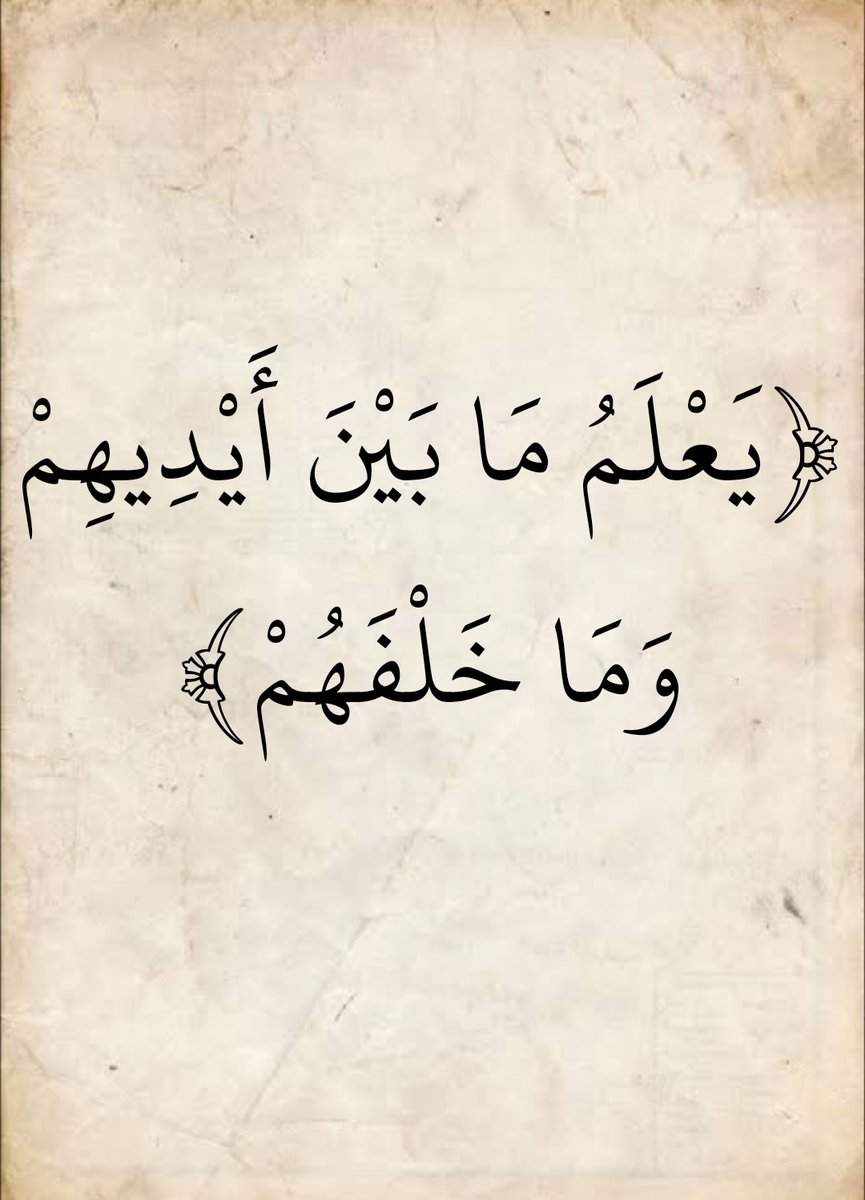 ﴿يَعْلَمُ مَا بَيْنَ أَيْدِيهِمْ
وَمَا خَلْفَهُمْ﴾